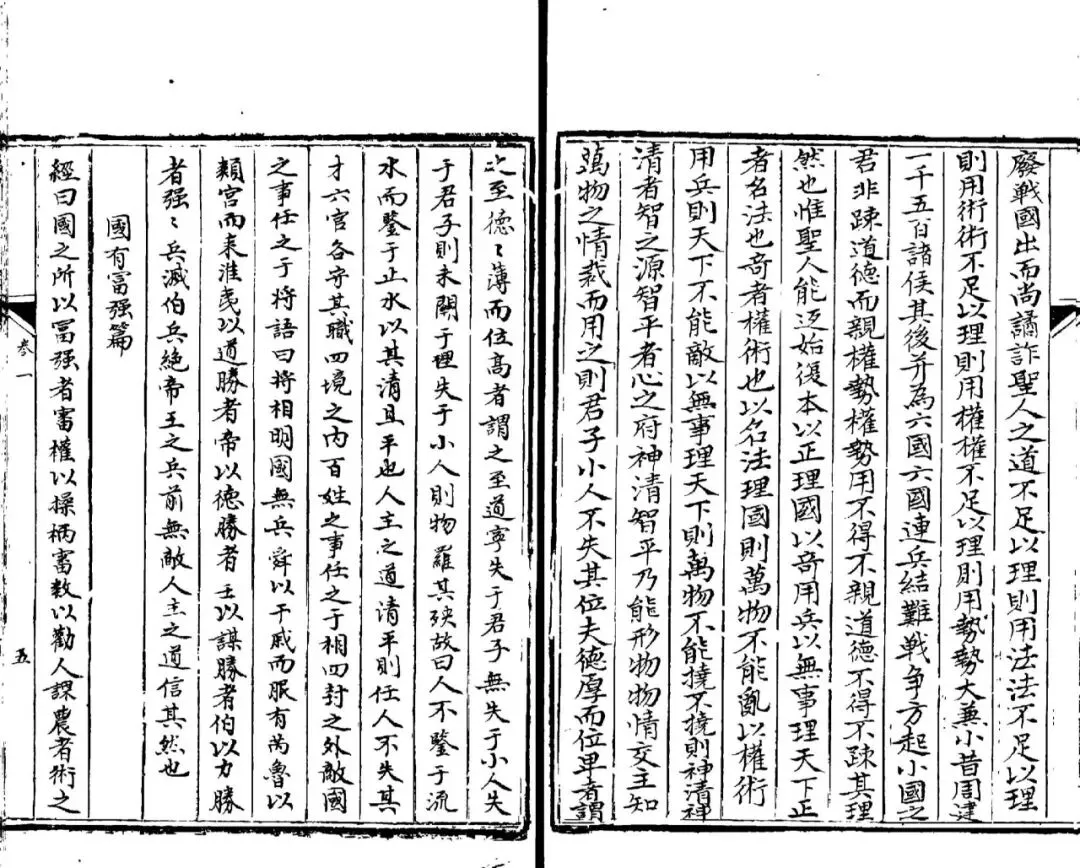 廢戰國出而尚譎詐聖人之道不足以理則用法法不足以理
則用術術不足以理則用權權不足以理則用勢勢大兼小昔周建
一千五百諸侯其後并為六國六國連兵結難戰争方起小國之
君非踈道德而親權勢權勢用不得不親道德不得不踈其理
然也惟聖人能迈始復本以正理國以竒用兵以無事理天下正
者名法也竒者權術也以名法理國則萬物不能亂以權術
用兵則天下不能敵以無事理天下則萬物不能撓不撓則神清神
清者智之源智平者心之府神清智平乃能形物物情交主知
萬物之情裁而用之則君子小人不失其位夫德厚而位卑者謂
之至德〻薄而位高者謂之至道寧失于君子無失于小人失
于君子則未闗于理失于小人則物羅其殃故曰人不鑒于流
水而鑒于止水以其清且平也人主之道清平則任人不失其
才六官各守其職四境之内百姓之事任之于相四封之外敵國
之事任之于將語曰將相明國無兵舜以干戚而服有苗魯以
頖宫而来淮夷以道勝者帝以德勝者王以謀勝者伯以力勝
者强〻兵滅伯兵絶帝王之兵前無敵人主之道信其然也
國有富强篇
經曰國之所以富强者審權以操柄審数以勸人課農者術之
卷一
五